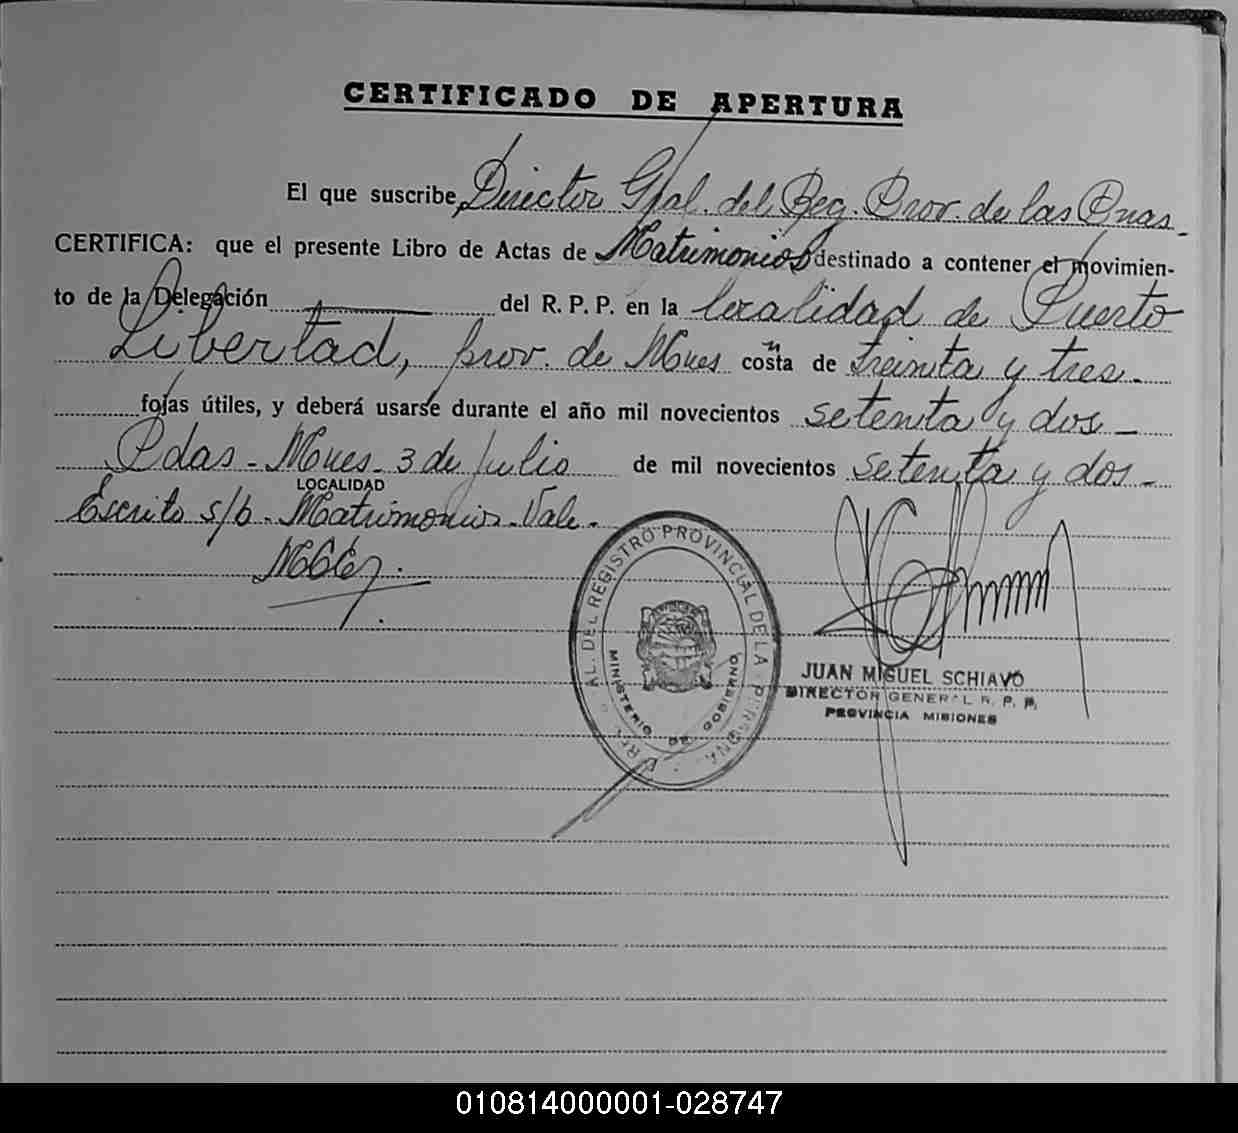 CERTIFICADO DE APERTURA
El que suscribe, Director Gral. del Reg. Prov. de las Pnas.
CERTIFICA: que el presente Libro de Actas de Matrimonios destinado a contener el movimien-
to de la Delegación del R. P. P. en la localidad de Puerto
Libertad, prov. de Mnes costa de treinta y tres.
fojas útiles, y deberá usarse durante el año mil novecientos setenta y dos
Pdas - Mnes - 3 de Julio de mil novecientos setenta y dos -
LOCALIDAD
Escrito s/b - Matrimonios - Vale.
AL. DEL REGISTRO PROVINCIAL DE LA PERSONA
MINISTERIO DE GOBIERNO
JUAN MIGUEL SCHIAVO
DIRECTOR GENERAL R. P. P.
PROVINCIA MISIONES
010814000001-028747